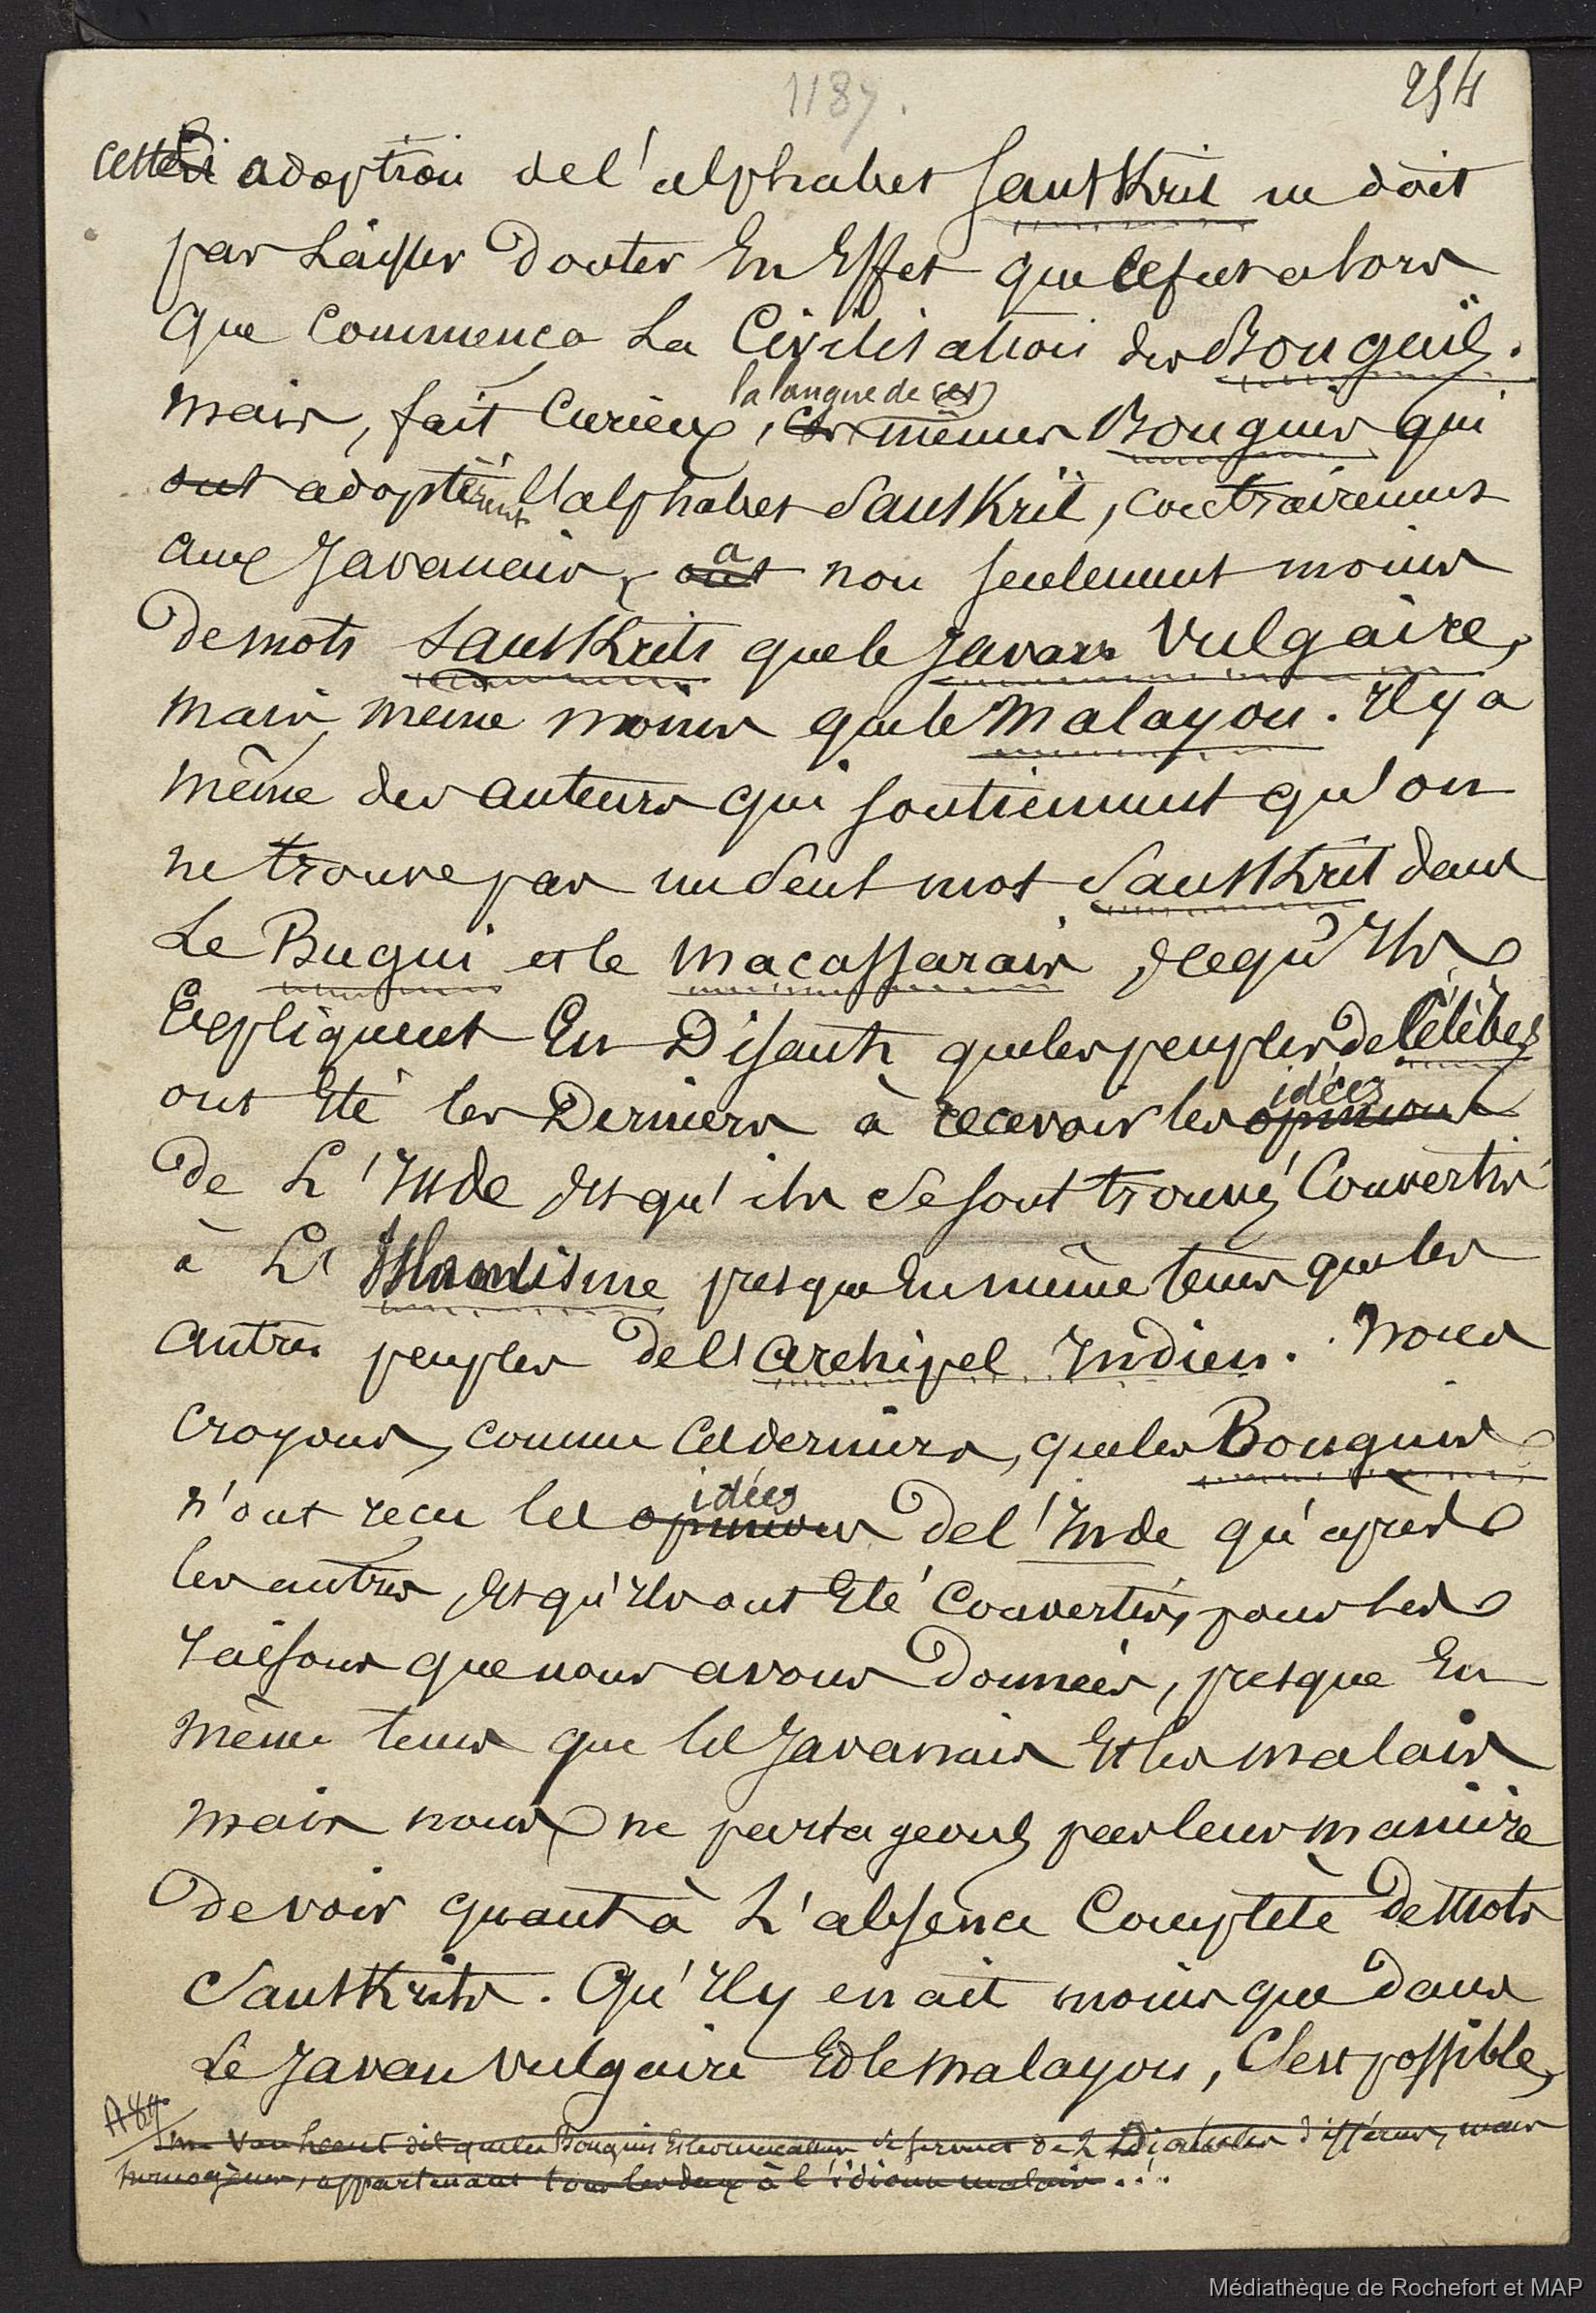 1187.
254
cette adoption de l'alphabet Sanskrit ne doit
pas laisser douter En Effet que ce fut alors
que commença La Civilisation des Bouguis.
Mais, fait Curieux, la langue de ces mêmes Bouguis qui
ont adoptèrent l'alphabet Sanskrit, contrairement
aux Javanais, a non seulement moins
de mots Sanskrits que le Javan Vulgaire,
mais même moins que le Malayou. Il y a
même des auteurs qui soutiennent qu'on
ne trouve pas un seul mot Sanskrit dans
Le Bugui et le Macassarais, ce qu'Ils
Expliquent En Disant que les peuples de Célèbes
ont Eté les Derniers à recevoir les opinions idées
de L'Inde et qu'ils se sont trouvés Convertis
à L'Islamisme presque En même tems que les
autres peuples de l'Archipel Indien. Nous
croyons, comme ces derniers, que les Bouguis
n'ont reçu les opinions idées de l'Inde qu'après
les autres, et qu'Ils ont Eté Convertis, pour les
raisons que nous avons Données, presque En
même tems que les Javanais Et les Malais
mais nous ne partageons pas leur manière
de voir quant à L'absence Complète de Mots
Sanskrits. Qu'Il y en ait moins que dans
Le Javan vulgaire Et le Malayou, C'est possible,
A 84.
Mr Van hecut dit que les Bouguis Et les Macassars se servent de 2 Dialectes différens, mais
homogènes, appartenant tous les deux à l'idiome malais...
Médiathèque de Rochefort et MAP